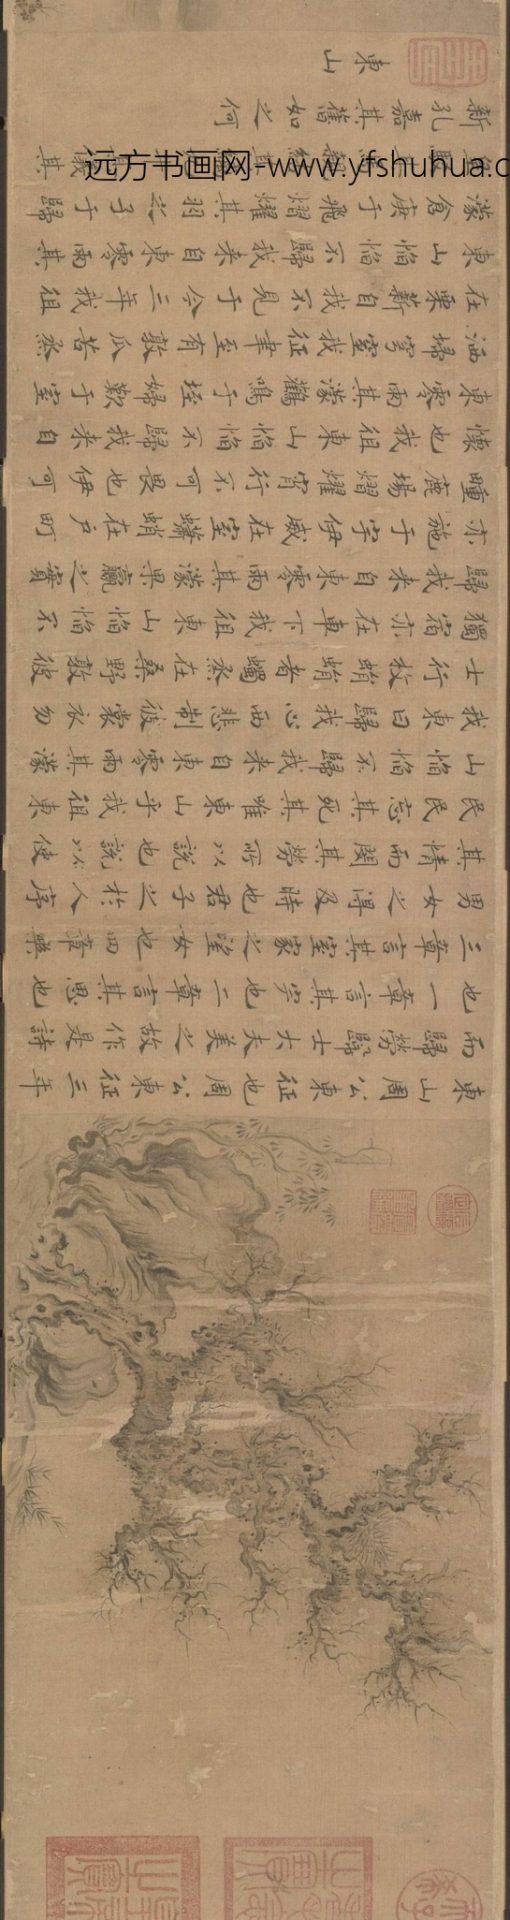 東山周公東征也周公東征三年
而歸勞歸士大夫美之故作是詩
也一章言其完也二章言其思也
三章言其室家之望女也四章樂
男女之得及時也君子之於人序
其情而閔其勞所以說也說以使
民民忘其死其唯東山乎我徂東
山慆慆不歸我來自東零雨其濛
我東曰歸我心西悲制彼裳衣勿
士行枚蜎蜎者蠋烝在桑野敦彼
獨宿亦在車下我徂東山慆慆不
歸我來自東零雨其濛果臝之實
亦施于宇伊威在室蠨蛸在戶町
畽鹿場熠燿宵行不可畏也伊可
懷也我徂東山慆慆不歸我來自
東零雨其濛鸛鳴于垤婦歎于室
洒埽穹窒我征聿至有敦瓜苦烝
在栗薪自我不見于今三年我徂
東山慆慆不歸我來自東零雨其
濛倉庚于飛熠燿其羽之子于歸
結 儀其
新孔嘉其舊如之何
東山
远方书画网-www.yfshuhua.c